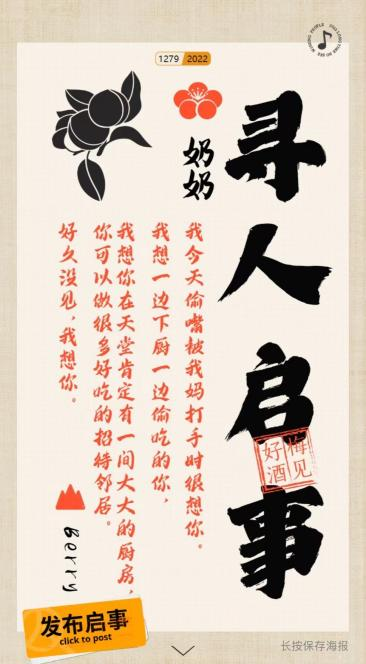 1279 2022
寻人启事
奶奶
我今天偷嘴被我妈打手时很想你。
我想一边下厨一边偷吃的你，
我想你在天堂肯定有一间大大的厨房，
你可以做很多好吃的招待邻居。
好久没见，我想你。
Berry
梅见
好酒
发布启事
click to post
长按保存海报